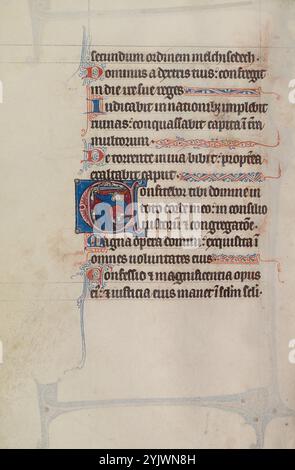 secundum ordinem melchisedech.
Dominus a dextris tuis: confregit
in die ire sue reges
Iudicabit in nationib; implebit
ruinas: conquassabit capita ī
multorum.
De torrente in uia bibit: propterea
exaltabit caput.
Confitebor tibi domine in
toto corde meo: in consilio
iustorum ⁊ congregatōe.
Magna opera domini: exquisita ī
omnes uoluntates eius
Confessio ⁊ magnificentia opus
ei: ⁊ iusticia eius manet ī sclm scli.
alamy
2YJWN8H